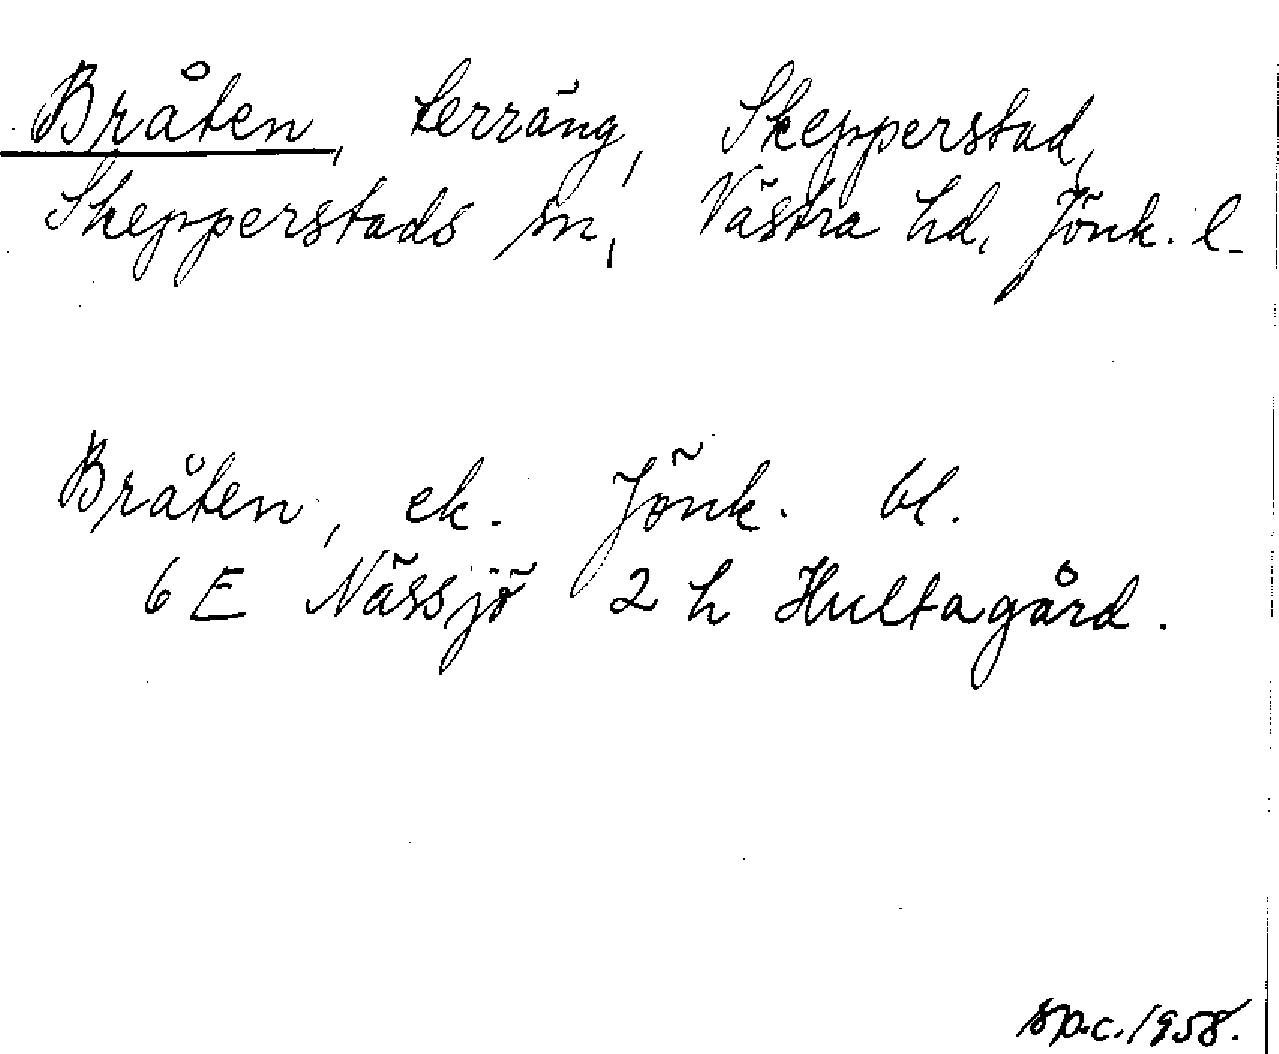 Bråten, terräng, Skepperstad,
Skepperstads sn, Västra hd, Jönk. l.
Bråten, ek. Jönk. bl.
6 E Nässjö 2 h Hultagård.
sp.c. 1958.